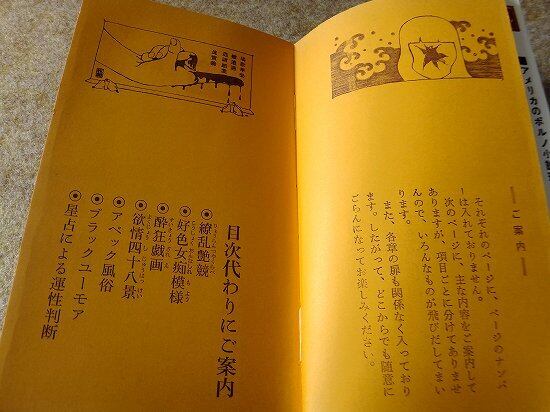 アメリカのポルノ小
ご案内
それぞれのページに、ページのナンバ
ーは入れておりません。
次のページに、主な内容をご案内して
ありますが、項目ごとに分けてありませ
んので、いろんなものが飛びだしてまい
ります。
また、各章の扉も関係なく入っており
ます。したがって、どこからでも随意に
ごらんになってお楽しみください。
目次代わりにご案内
●繚乱艶競
●好色女痴模様
●酔狂戯画
●欲情四十八景
●アベック風俗
●ブラックユーモア
●星占による運性判断